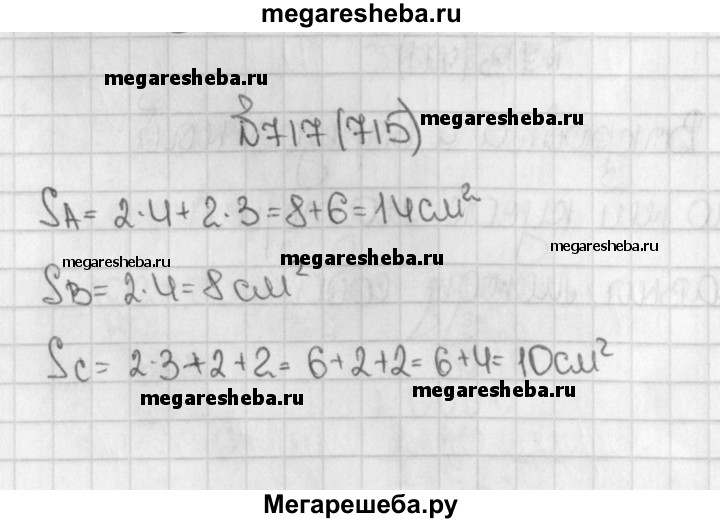 megaresheba.ru
megaresheba.ru
№717 (715)
megaresheba.ru
S_A = 2·4 + 2·3 = 8+6 = 14 см²
megaresheba.ru
megaresheba.ru
megaresheba.ru
S_B = 2·4 = 8 см²
S_C = 2·3+2+2 = 6+2+2 = 6+4 = 10 см²
megaresheba.ru
megaresheba.ru
Мегарешеба.ру